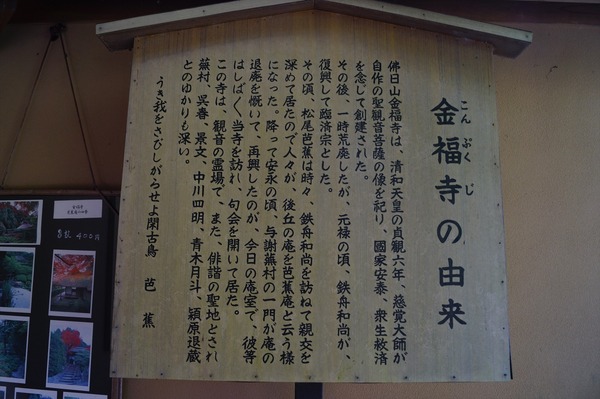 金福寺の由来
こん ぷく じ
佛日山金福寺は、清和天皇の貞観六年、慈覚大師が
自作の聖観音菩薩の像を祀り、國家安泰、衆生救済
を念じて創建された。
その後、一時荒廃したが、元禄の頃、鉄舟和尚が、
復興して臨済宗とした。
その頃、松尾芭蕉は時々、鉄舟和尚を訪ねて親交を
深めて居たので人々が、後丘の庵を芭蕉庵と云う様
になった。降って安永の頃、与謝蕪村の一門が庵の
退廃を慨いて、再興したのが、今日の庵室で、彼等
はしば〱当寺を訪れ、句会を開いて居た。
この寺は、観音の霊場で、また、俳諧の聖地とされ
蕪村、呉春、景文、中川四明、青木月斗、潁原退蔵
とのゆかりも深い。
うき我をさびしがらせよ閑古鳥 芭蕉